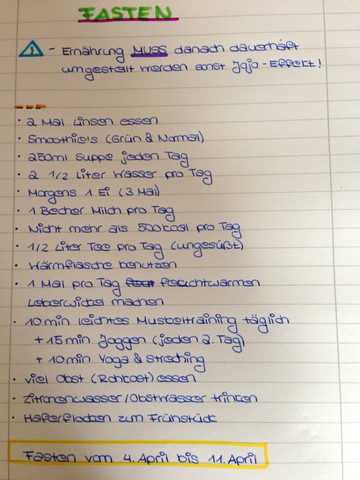 FASTEN
- Ernährung MUSS danach dauerhaft
umgestellt werden sonst Jojo-Effekt!
• 2 Mal Linsen essen
• Smoothie's (Grün & Normal)
• 250ml Suppe jeden Tag
• 2 1/2 Liter Wasser pro Tag
• Morgens 1 Ei (3 Mal)
• 1 Becher Milch pro Tag
• Nicht mehr als 500kcal pro Tag
• 1/2 Liter Tee pro Tag (ungesüßt)
• Wärmflasche benutzen
• 1 Mal pro Tag feuchtwarmen
Leberwickel machen
• 10 min leichtes Muskeltraining täglich
+ 15 min Joggen (jeden 2. Tag)
+ 10 min Yoga & Streching
• Viel Obst (Rohkost) essen
• Zitronenwasser/Obstwasser trinken
• Haferflocken zum Frühstück
Fasten vom 4. April bis 11. April